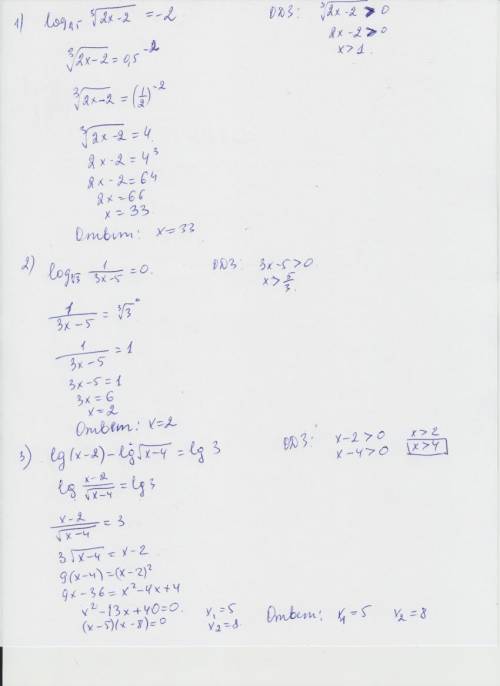 1) log₀,₅ ∛(2x-2) = -2 ОДЗ: ∛(2x-2) > 0
∛(2x-2) = 0,5⁻² 2x-2 > 0
x > 1.
∛(2x-2) = (1/2)⁻²
∛(2x-2) = 4
2x-2 = 4³
2x-2 = 64
2x = 66
x = 33
Ответ: x = 33
2) log_∛3 1/(3x-5) = 0. ОДЗ: 3x-5 > 0
x > 5/3.
1/(3x-5) = ∛3⁰
1/(3x-5) = 1
3x-5 = 1
3x = 6
x = 2
Ответ: x = 2
3) lg(x-2) - lg√(x-4) = lg 3 ОДЗ: x-2 > 0 x > 2
x-4 > 0 x > 4
lg (x-2)/√(x-4) = lg 3
(x-2)/√(x-4) = 3
3√(x-4) = x-2
9(x-4) = (x-2)²
9x-36 = x²-4x+4
x²-13x+40=0. x₁=5 Ответ: x₁=5 x₂=8
(x-5)(x-8)=0 x₂=8.